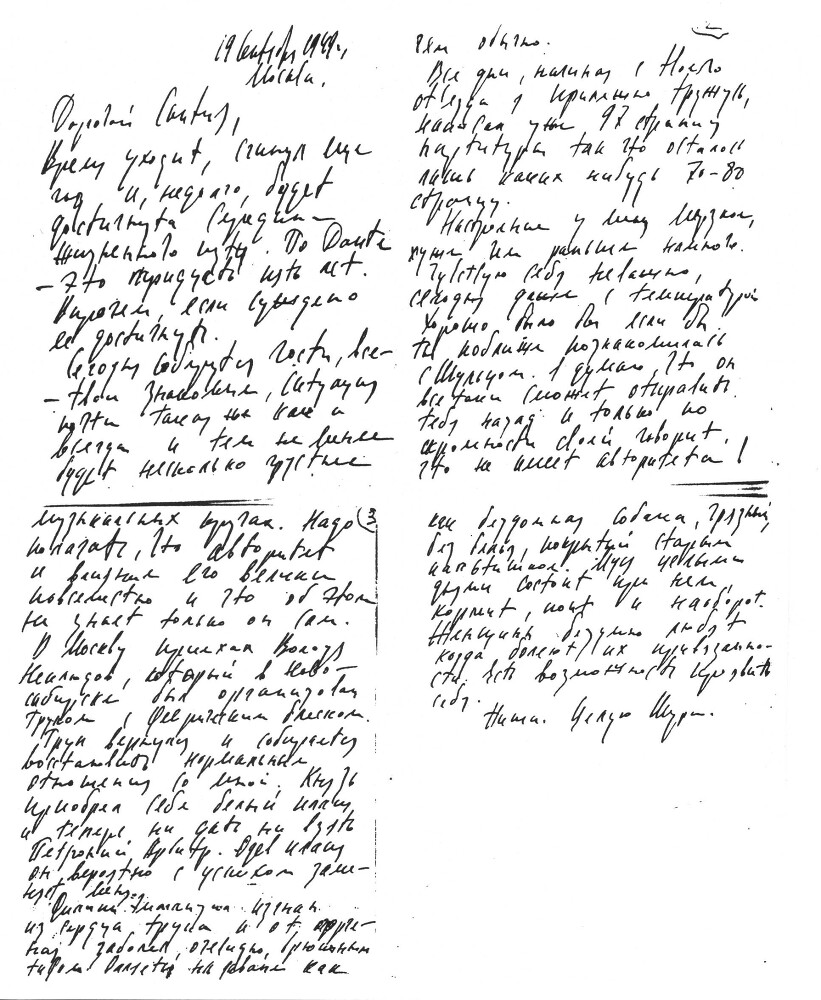 19 сентября 1949 г.,
Москва.
Дорогой
Время уходит, сгинул еще
год и, недолго, будет
достигнута середина
жизненного пути. По Данте
— это тридцать пять лет.
Впрочем, если суждено
ее достигнуть.
Сегодня соберутся гости, все-
— твои знакомые, ситуация
почти такая же как и
всегда и тем не менее
будет несколько грустнее
2
чем обычно.
Все дни, начиная с
отъезда я прилежно тружусь,
написал уже 97 страниц
партитуры так что осталось
лишь каких нибудь 70-80
страниц.
Настроение у меня мерзкое,
хуже чем раньше намного.
Чувствую себя неважно,
сегодня даже с температурой
Хорошо было бы если бы
ты поближе познакомилась
с Шульцом. Я думаю, что он
все таки сможет отправить
тебя назад и только по
скромности своей говорит,
что не имеет авторитета!
3
музыкальных кругах. Надо
полагать, что авторитет
и влияние его велики
повсеместно и что об этом
не знает только он сам.
В Москву приехал Володя
который в Ново-
сибирске был организован
Трупом с фееричным блеском.
Труп вернулся и собирается
восстановить нормальные
отношения со мной. Князь
приобрел себе белый плащ
и теперь ни дать ни взять
Петроний Арбитр. Одев плащ
он вероятно с успехом заме-
нял меня.
изгнан
из сердца трупа и от
заболел, очевидно, брюшным
тифом. на диване как
как бездомная собака, грязный,
без белья, покрытый старым
Муж целыми
днями состоит при нем,
кормит, поит и наоборот.
Женщины безумно любят
когда болеют их привязанно-
сти. Есть возможность проявить
себя.
Пиши. Целую Шура.